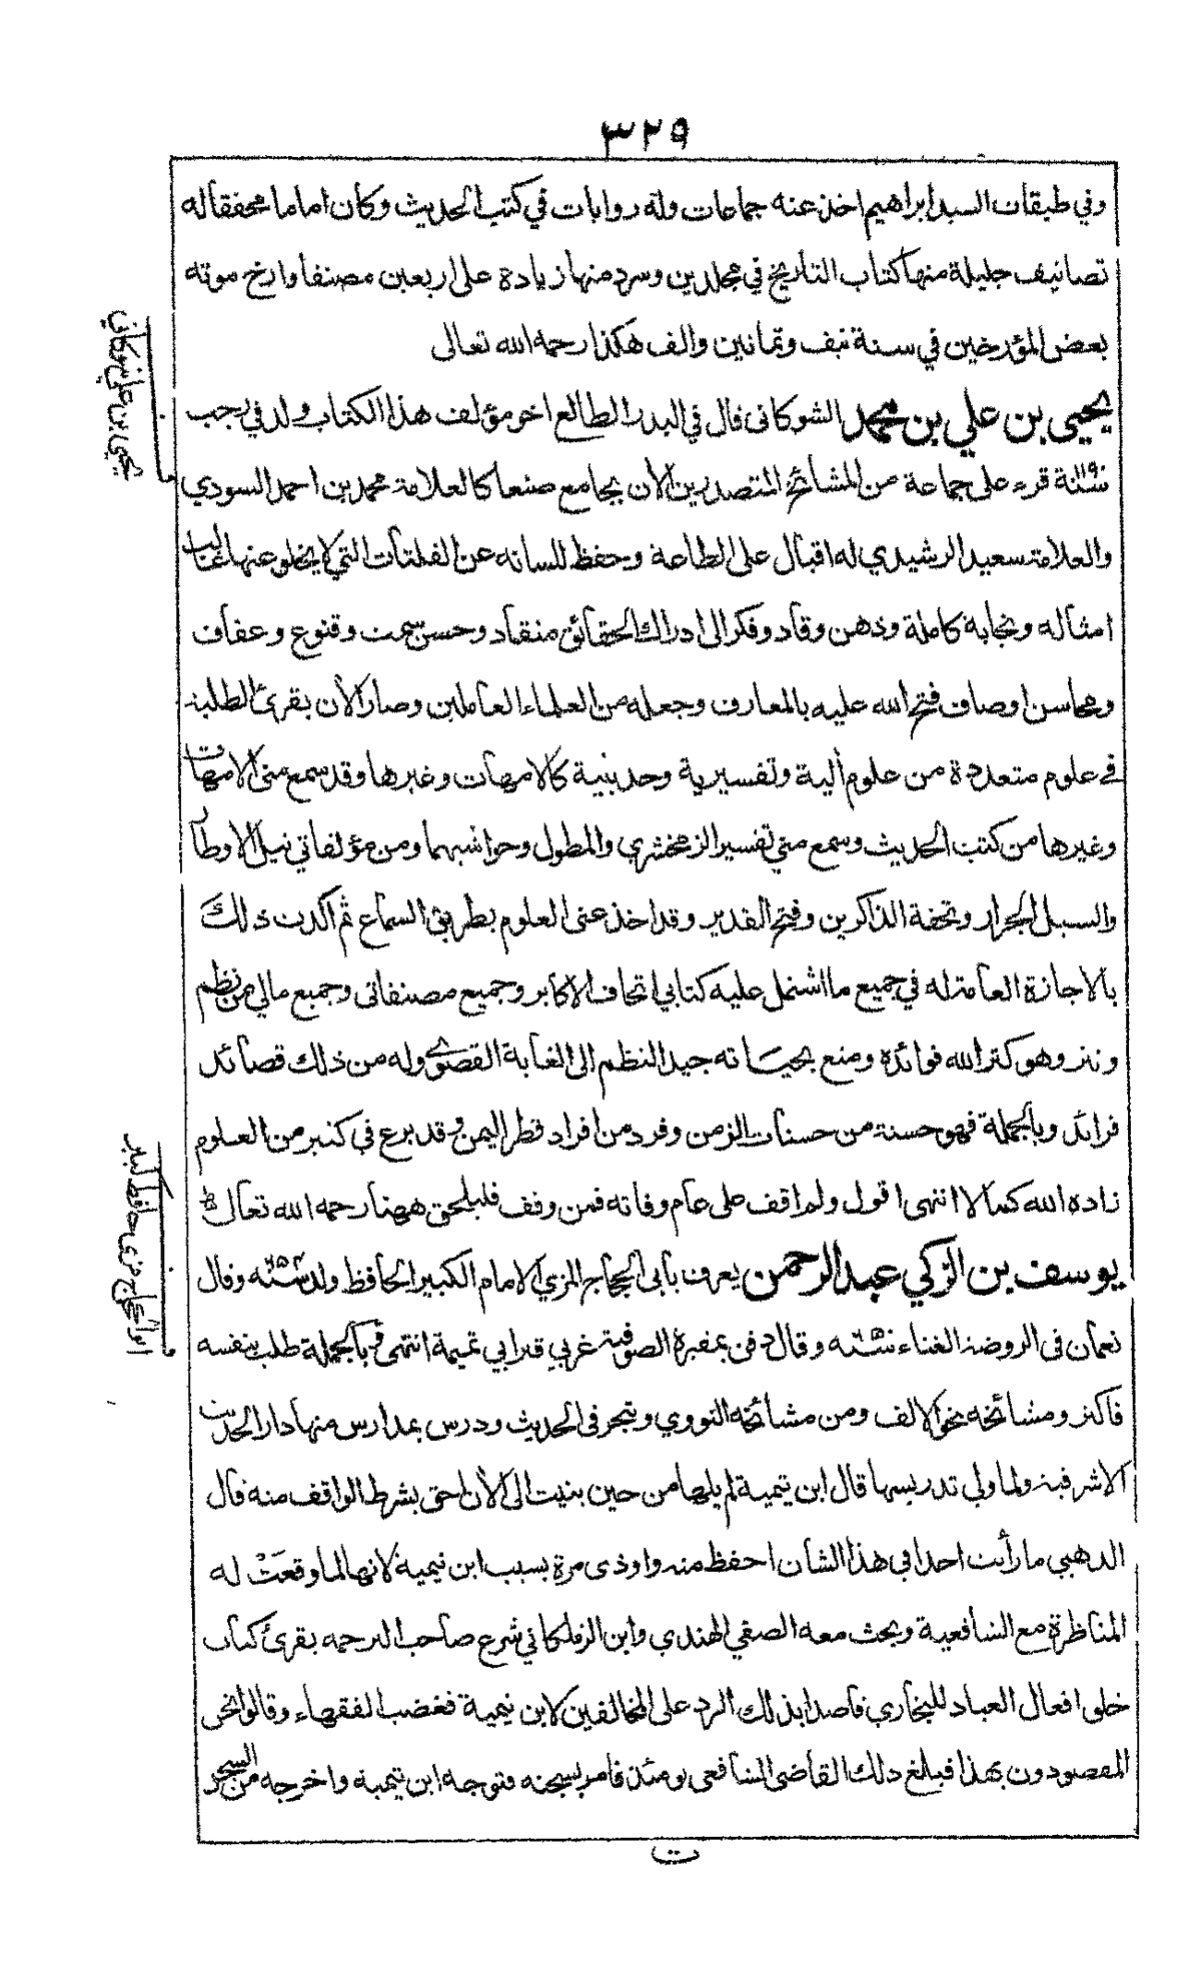 ٣٢٩
وفي طبقات السيد ابراهيم اخذ عنه جماعات وله روايات في كتب الحديث وكان اماما محققا له
تصانيف جليلة منها كتاب التاريخ في مجلدين وسرد منها زيادة على اربعين مصنفا وارخ موته
بعض المؤرخين في سنة نيف وثمانين والف هكذا رحمه الله تعالى
يحيى بن علي بن محمد الشوكاني قال في البدر الطالع اخو مؤلف هذا الكتاب ولد في رجب
سنة ١١٩٠ قرء على جماعة من المشائخ المتصدرين الأن بجامع صنعا كالعلامة محمد بن احمد السودي
والعلامة سعيد الرشيدي له اقبال على الطاعة وحفظ للسانه عن الفلتات التي لا يخلو عنها غالب
امثاله ونجابة كاملة وذهن وقاد وفكر الى ادراك الحقائق منقاد وحسن سمت وقنوع وعفاف
ومحاسن اوصاف فتح الله عليه بالمعارف وجعله من العلماء العاملين وصار الأن يقرئ الطلبة
في علوم متعددة من علوم ألية وتفسيرية وحديثية كالامهات وغيرها وقد سمع مني الامهات
وغيرها من كتب الحديث وسمع مني تفسير الزمخشري والمطول وحواشيهما ومن مؤلفاتي نيل الاوطار
والسيل الجرار وتحفة الذاكرين وفتح القدير وقد اخذ عني العلوم بطريق السماع ثم اكدت ذلك
بالاجازة العامة له في جميع ما اشتمل عليه كتابي اتحاف الاكابر وجميع مصنفاتي وجميع مالي من نظم
ونثر وهو كثر الله فوائده ومتع بحياته جيد النظم الى الغاية القصوى وله من ذلك قصائد
فرائد وبالجملة فهو حسنة من حسنات الزمن وفرد من افراد قطر اليمن وقد برع في كثير من العلوم
زاده الله كمالا انتهى اقول ولم اقف على عام وفاته فمن وقف فليلحق ههنا رحمه الله تعالى
يوسف بن الزكي عبد الرحمن يعرف بأبي الحجاج المزي الامام الكبير الحافظ ولد سنة ٦٥٤ وقال
نعمان في الروضة الغناء سنة وقال دفن بمقبرة الصوفية غربي قبر ابي تميمة انتهى وبالجملة طلب بنفسه
فاكثر ومشائخه نحو الالف ومن مشائخه النووي وتبحر في الحديث ودرس بمدارس منها دار الحديث
الاشرفية ولما ولي تدريسها قال ابن تيمية لم يلها من حين بنيت الى الأن احق بشرط الواقف منه قال
الذهبي ما رأيت احدا في هذا الشان احفظ منه واوذى مرة بسبب ابن تيمية لانها لما وقعت له
المناظرة مع الشافعية وبحث معه الصفي الهندي وابن الزملكاني شرع صاحب الترجمه يقرئ كتاب
خلق افعال العباد للبخاري قاصدا بذلك الرد على المخالفين لابن تيمية فغضب الفقهاء وقالوا نحن
المقصودون بهذا فبلغ ذلك القاضي الشافعي يومئذ فامر بسجنه فتوجه ابن تيمية واخرجه من السجن
يحيى بن علي شوكاني
ابو الحجاج مزي حافظ كبير
ت